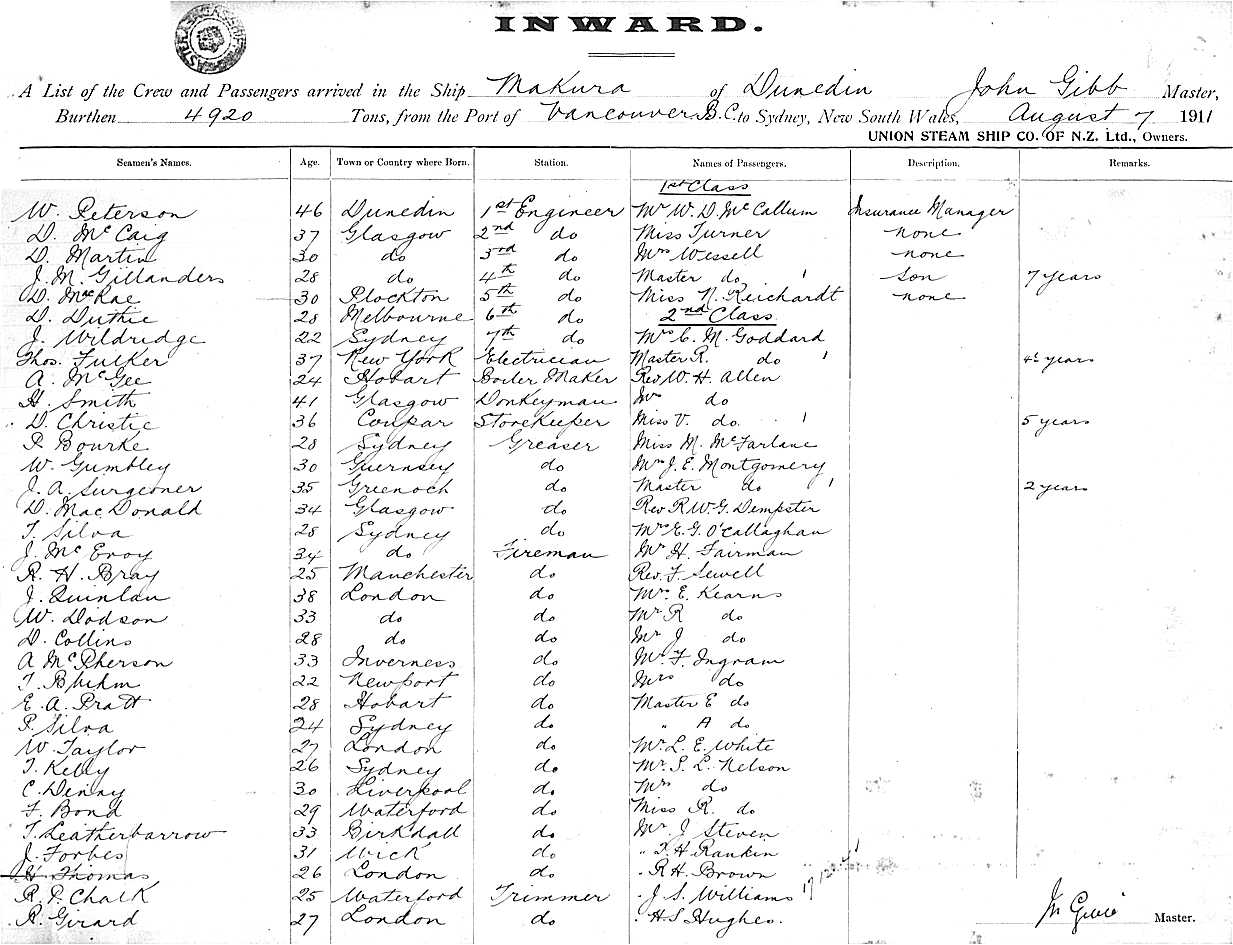 INWARD.
A List of the Crew and Passengers arrived in the Ship Makura of Dunedin John Gibb Master,
Burthen 4920 Tons, from the Port of Vancouver B.C. to Sydney, New South Wales, August 7 1911
UNION STEAM SHIP CO. OF N.Z. Ltd., Owners.
Seamen's Names. Age. Town or Country where Born. Station. Names of Passengers. Description. Remarks.
1st Class
W. Peterson 46 Dunedin 1st Engineer Mr W. D. McCallum Insurance Manager
D. McCaig 37 Glasgow 2nd do Miss Turner none
D. Martin 30 do 3rd do Mrs Wessell none
J. M. Gillanders 28 do 4th do Master do 1 son 7 years
D. MacRae 30 Plockton 5th do Miss N. Reichardt none
D. Duthie 28 Melbourne 6th do 2nd Class
J. Wildridge 22 Sydney 7th do Mrs C. M. Goddard
Thos. Fulker 37 New York Electrician Master R. do 1 4½ years
A. McGee 24 Hobart Boiler Maker Rev W. H. Allen
H. Smith 41 Glasgow Donkeyman Mrs do
D. Christie 36 Coupar Storekeeper Miss V. do. 1 5 years
P. Bourke 28 Sydney Greaser Miss M. McFarlane
W. Gumbley 30 Guernsey do Mrs J. E. Montgomery
J. A. Surgeoner 35 Greenock do Master do 1 2 years
D. MacDonald 34 Glasgow do Rev R. W. G. Dempster
T. Silva 28 Sydney do Mrs E. G. O'Callaghan
J. McEvoy 34 do Fireman Mr H. Fairman
R. H. Bray 25 Manchester do Rev. F. Sewell
J. Quinlan 38 London do Mr. E. Kearns
W. Dodson 33 do do Mr R do
D. Collins 28 do do Mr J do
A McPherson 33 Inverness do Mr F. Ingram
T. Bluhm 22 Newport do Mrs do
E. A. Pratt 28 Hobart do Master E do
P. Silva 24 Sydney do " A do
W. Taylor 27 London do Mr. L. E. White
T. Kelly 26 Sydney do Mr. S. L. Nelson
C. Denny 30 Liverpool do Mrs do
F. Bond 29 Waterford do Miss R. do
T. Leatherbarrow 33 Birkdall do Mr. J Steven
J. Forbes 31 Wick do " T. H. Rankin
H Thomas 26 London do " R H. Brown
R. P. Chalk 25 Waterford Trimmer " J. S. Williams
R. Girard 27 London do " H S Hughes.
Master.